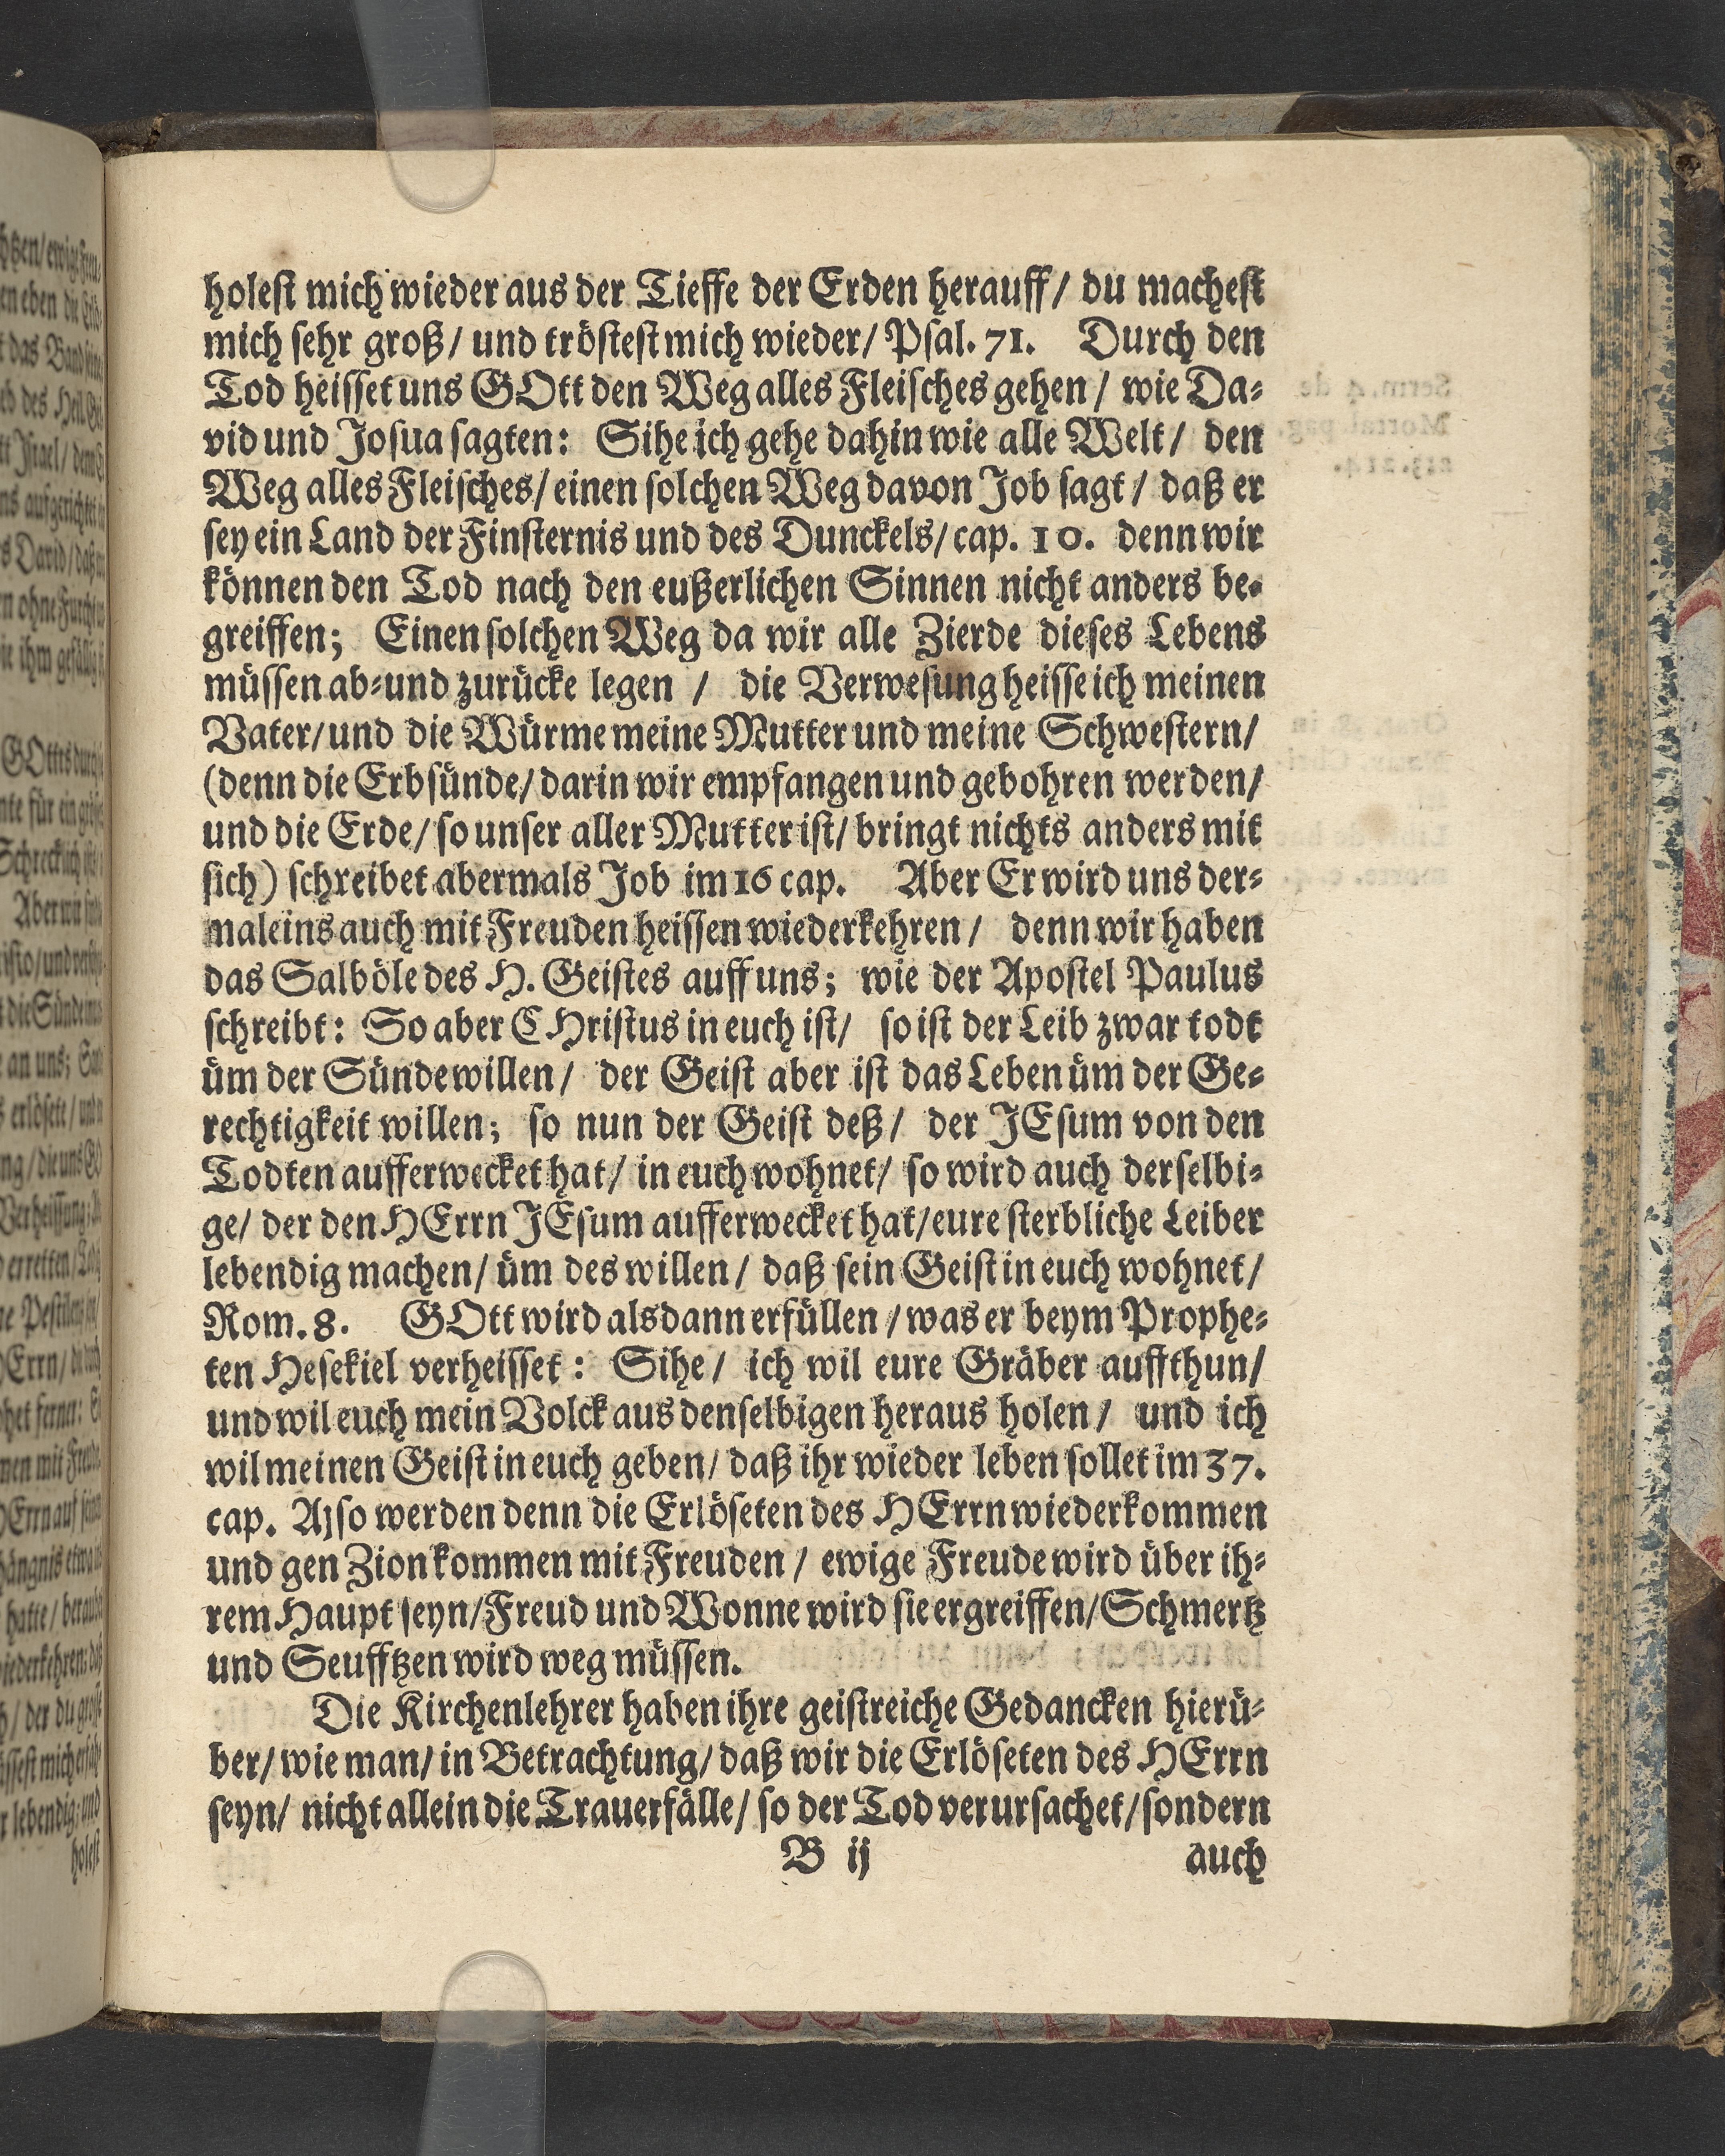 holest mich wieder aus der Tieffe der Erden herauff/ du machest
mich sehr groß/ und tröstest mich wieder/ Psal. 71. Durch den
Tod heisset uns GOtt den Weg alles Fleisches gehen / wie Da-
vid und Josua sagten: Sihe ich gehe dahin wie alle Welt/ den
Weg alles Fleisches/ einen solchen Weg davon Job sagt / daß er
sey ein Land der Finsternis und des Dunckels/ cap. 10. denn wir
können den Tod nach den eußerlichen Sinnen nicht anders be-
greiffen; Einen solchen Weg da wir alle Zierde dieses Lebens
müssen ab-und zurücke legen / die Verwesung heisse ich meinen
Vater/ und die Würme meine Mutter und meine Schwestern/
(denn die Erbsünde/ darin wir empfangen und gebohren werden/
und die Erde/ so unser aller Mutter ist/ bringt nichts anders mit
sich) schreibet abermals Job im 16 cap. Aber Er wird uns der-
maleins auch mit Freuden heissen wiederkehren / denn wir haben
das Salböle des H. Geistes auff uns; wie der Apostel Paulus
schreibt: So aber CHristus in euch ist/ so ist der Leib zwar todt
üm der Sünde willen / der Geist aber ist das Leben üm der Ge-
rechtigkeit willen; so nun der Geist deß/ der JEsum von den
Todten aufferwecket hat/ in euch wohnet/ so wird auch derselbi-
ge/ der den HErrn JEsum aufferwecket hat/ eure sterbliche Leiber
lebendig machen/ üm des willen / daß sein Geist in euch wohnet/
Rom. 8. GOtt wird alsdann erfüllen / was er beym Prophe-
ten Hesekiel verheisset: Sihe/ ich wil eure Gräber auffthun/
und wil euch mein Volck aus denselbigen heraus holen / und ich
wil meinen Geist in euch geben/ daß ihr wieder leben sollet im 37.
cap. Also werden denn die Erlöseten des HErrn wiederkommen
und gen Zion kommen mit Freuden / ewige Freude wird über ih-
rem Haupt seyn/ Freud und Wonne wird sie ergreiffen/ Schmertz
und Seufftzen wird weg müssen.
Die Kirchenlehrer haben ihre geistreiche Gedancken hierü-
ber/ wie man/ in Betrachtung/ daß wir die Erlöseten des HErrn
seyn/ nicht allein die Trauerfälle/ so der Tod verursachet/ sondern
B ij auch